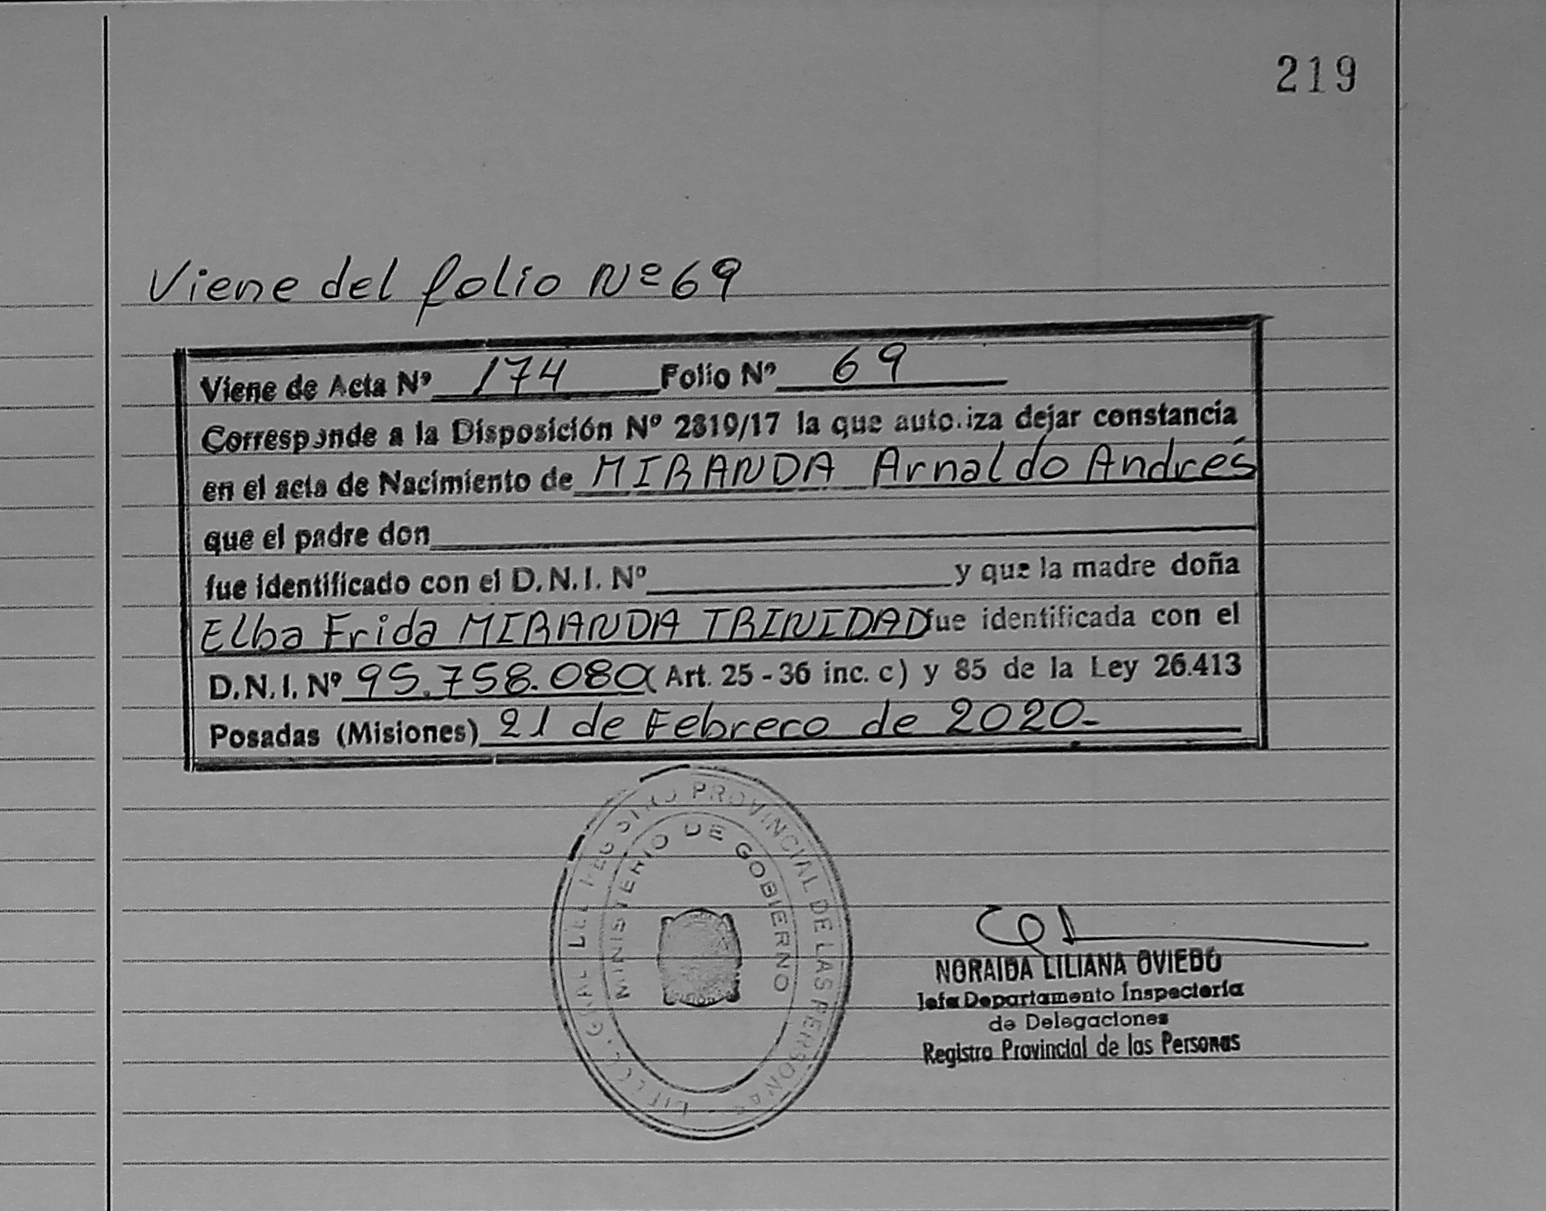 219
Viene del folio Nº 69
Viene de Acta Nº 174 Folio Nº 69
Corresponde a la Disposición Nº 2819/17 la que autoriza dejar constancia
en el acta de Nacimiento de MIRANDA Arnaldo Andrés
que el padre don
fue identificado con el D.N.I. Nº y que la madre doña
Elba Frida MIRANDA TRINIDAD fue identificada con el
D.N.I. Nº 95.758.080 (Art. 25 - 36 inc. c) y 85 de la Ley 26.413
Posadas (Misiones) 21 de Febrero de 2020-
REGISTRO PROVINCIAL DE LAS PERSONAS
MINISTERIO DE GOBIERNO
NORAIDA LILIANA OVIEDO
Jefa Departamento Inspectoría
de Delegaciones
Registro Provincial de las Personas